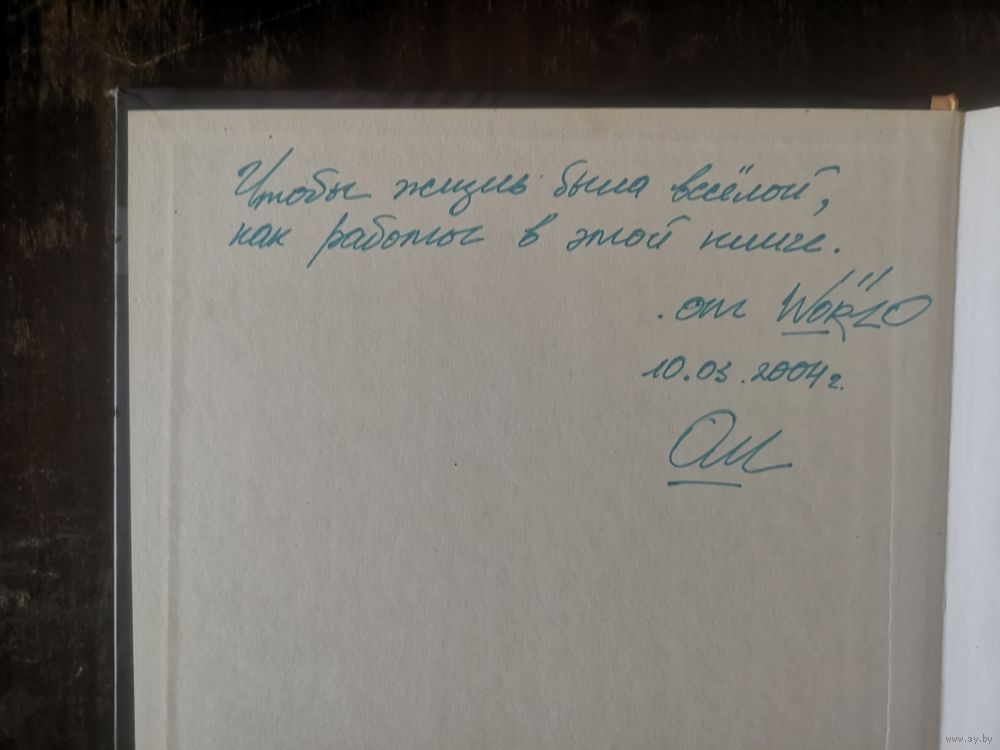 Чтобы жизнь была весёлой,
как работы в этой книге.
от WORLD
10.03.2004 г.
www.ay.by